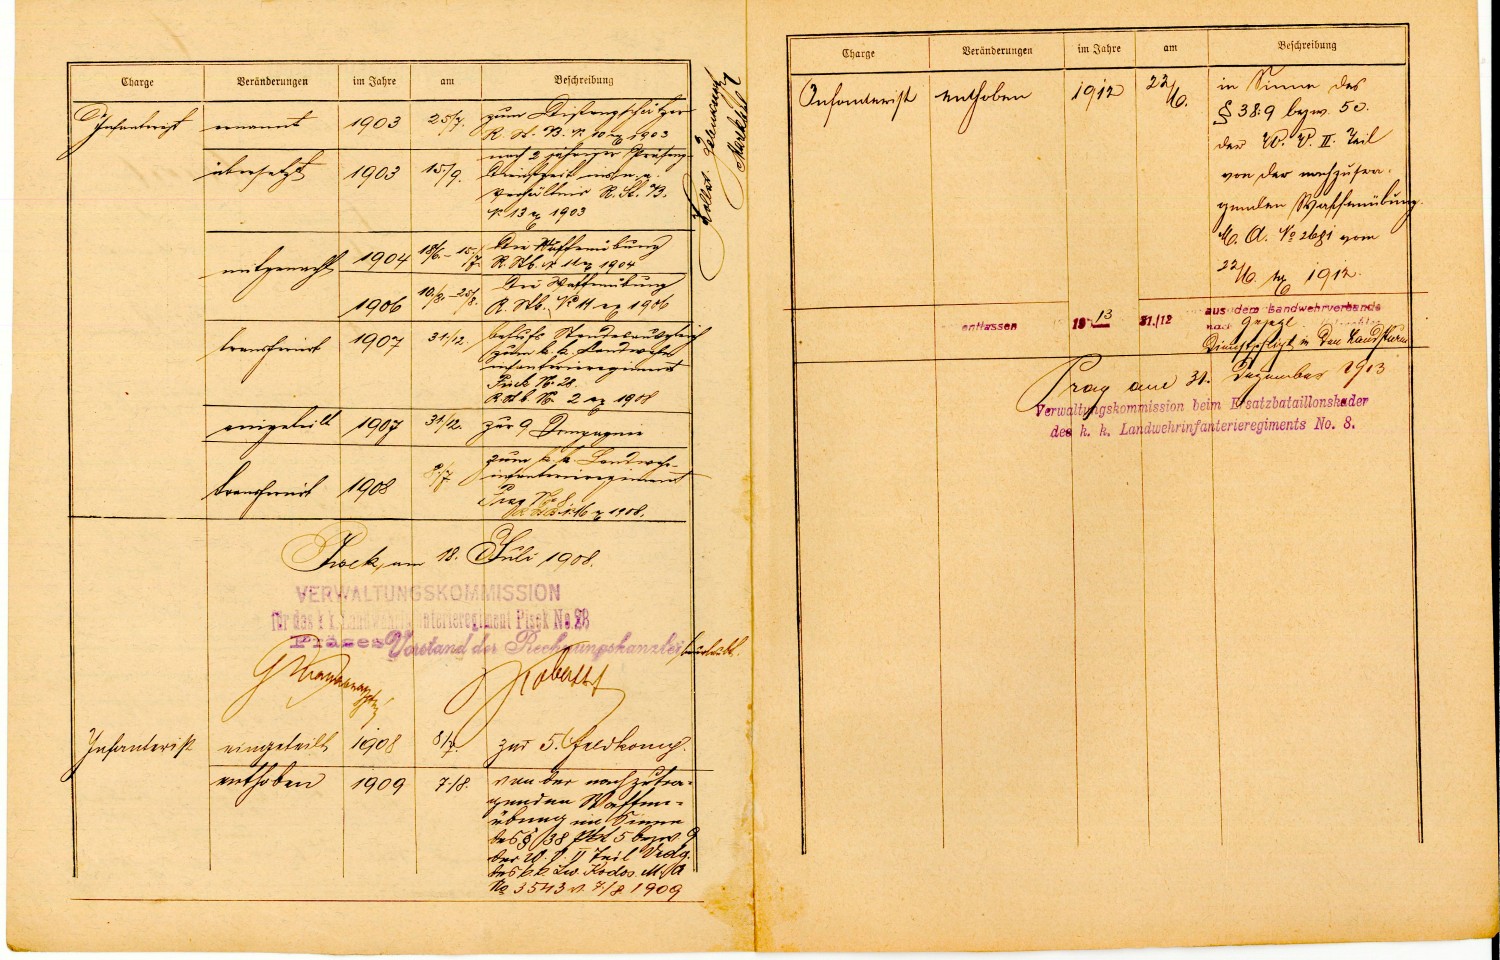 Charge Veränderungen im Jahre am Beschreibung
Infanterist ernannt 1903 25/7. zum Distanzschätzer
R. St. B. № 10 ex 1903
übersetzt 1903 15./9. nach 2 jähriger Präsenz-
dienstzeit ins
verhältnis R. St. B.
№ 13 ex 1903
mitgemacht 1904 18/6. - 15./7. die Waffenübung
R. Stb. № 11 ex 1904
1906 10/8. - 25/8. die Waffenübung
R. Stb. № 11 ex 1906
transferirt 1907 31/12. behufs Standesausgleich
zum k. k. Landwehr
infanterieregiment
Pisek № 28.
R. Stb. № 2 ex 1908
eingeteilt 1907 31/12. zur 9 Compagnie
transferirt 1908 8/7 zum k. k. Landwehr-
infanterieregiment
Prag № 8.
№ 16 ex 1908.
Pisek, am 18. Juli 1908.
VERWALTUNGSKOMMISSION
für das k. k. Landwehrinfanterieregiment Pisek No. 28
Präses Vorstand der Rechnungskanzlei
Infanterist eingeteilt 1908 8/7. zur 5. Feldkomp.
enthoben 1909 7./8. von der nachzutra-
genden Waffen-
übung im Sinne
des § 38 Pkt 5 bezw 9
der W. V. II Teil Vrdg.
des k. k. Lw. Kodos. M. A
№ 3543 v. 7/8. 1909
Charge Veränderungen im Jahre am Beschreibung
Infanterist enthoben 1912 22/6. in Sinne des
§ 38:9 bezw. 50.
der W. V. II. Teil
von der nachzutra-
genden Waffenübung.
M. A. № 2681 vom
22/6. ex 1912.
entlassen 1913 31./12 aus dem Landwehrverbande
nach gesetzl.
Dienstpflicht in den Landsturm
Prag am 31. Dezember 1913
Verwaltungskommission beim Ersatzbataillonskader
des k. k. Landwehrinfanterieregiments No. 8.